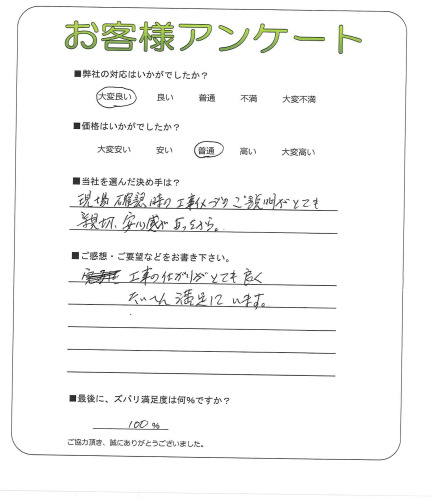 お客様アンケート
■弊社の対応はいかがでしたか？
大変良い 良い 普通 不満 大変不満
■価格はいかがでしたか？
大変安い 安い 普通 高い 大変高い
■当社を選んだ決め手は？
現場確認時の工事イメージのご説明がとても
親切、安心感があったから。
■ご感想・ご要望などをお書き下さい。
工事の仕上がりがとても良く
たいへん満足しています。
■最後に、ズバリ満足度は何％ですか？
100 %
ご協力頂き、誠にありがとうございました。